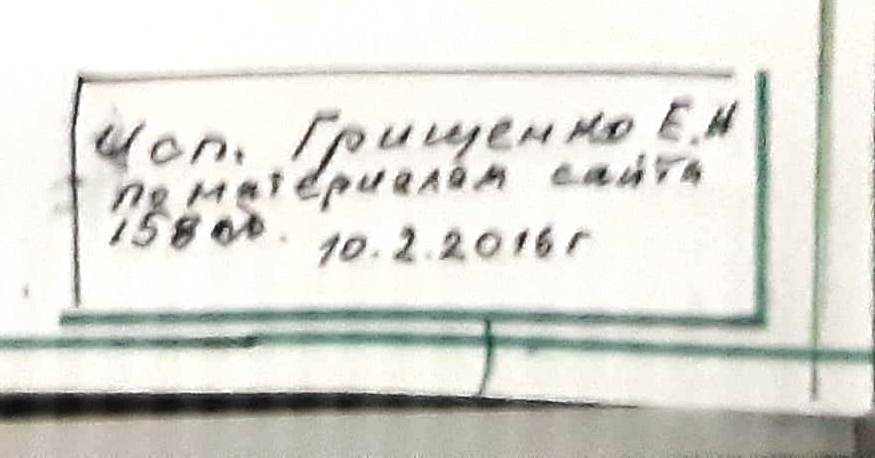 Исп. Грищенко Е.И
по материалам сайта
10.2.2016 г